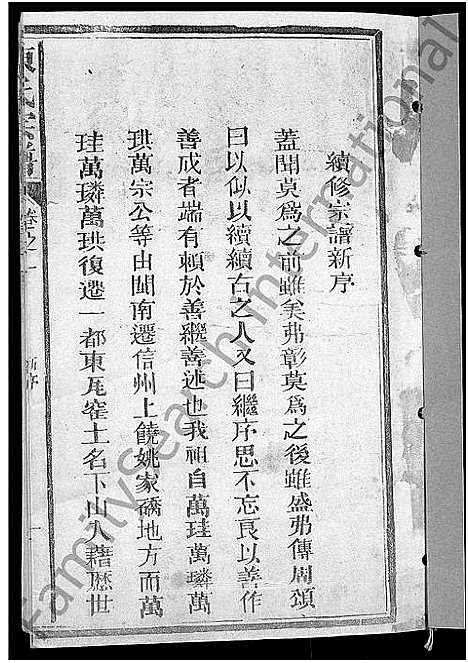 續修宗譜新序
蓋聞莫爲之前雖美弗彰莫爲之後雖盛弗傳周頌
曰以似以續續古之人又曰繼序思不忘良以善作
善成者端有賴於善繼善述也我祖自萬珪萬璘萬
珙萬宗公等由閩南遷信州上饒姚家礄地方而萬
珪萬璘萬珙復遷一都東瓦窑土名下山入籍歷世
氏宗譜
卷之一
新序
FamilySearch International